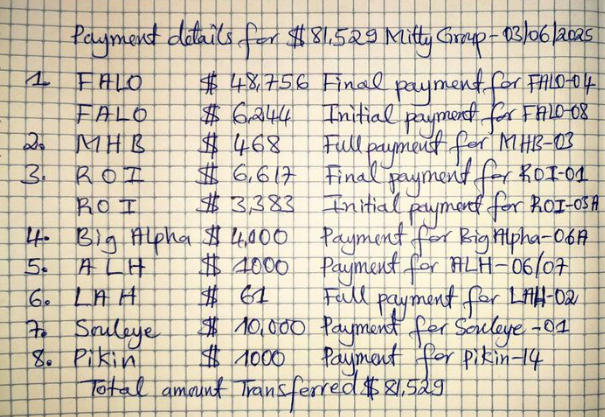 Payment details for $81,529 Mitty Group - 03/06/2025
1. FALO $ 48,756 Final payment for FALO-04
FALO $ 6,244 Initial payment for FALO-08
2. MHB $ 468 Full payment for MHB-03
3. ROI $ 6,617 Final payment for ROI-01
ROI $ 3,383 Initial payment for ROI-05A
4. Big Alpha $ 4,000 Payment for Big Alpha-06A
5. ALH $ 1000 Payment for ALH-06/07
6. LAH $ 61 Full payment for LAH-02
7. Souleye $ 10,000 Payment for Souleye-01
8. Pikin $ 1000 Payment for Pikin-14
Total amount Transferred $ 81,529